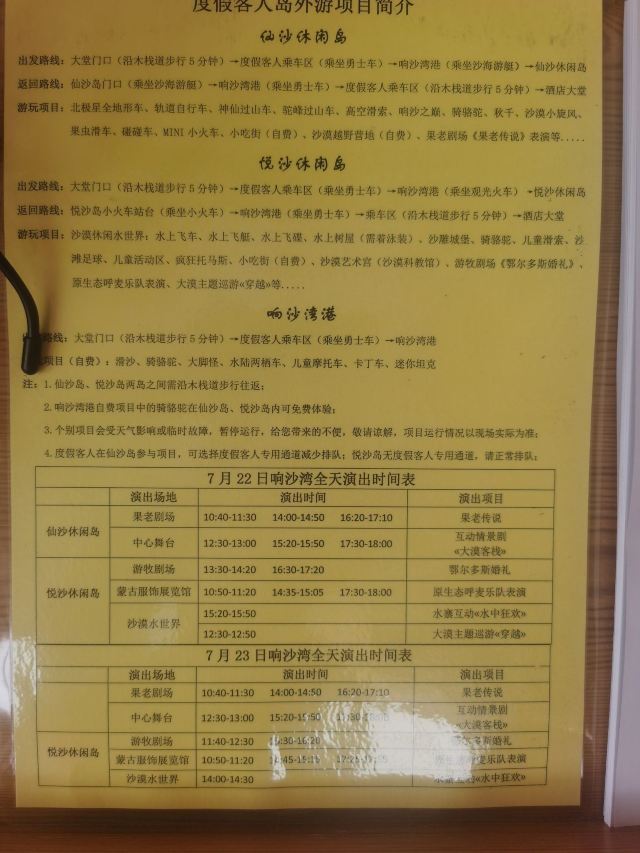 度假客人岛外游项目简介
仙沙休闲岛
出发路线：大堂门口（沿木栈道步行5分钟）→度假客人乘车区（乘坐勇士车）→响沙湾港（乘坐沙海游艇）→仙沙休闲岛
返回路线：仙沙岛门口（乘坐沙海游艇）→响沙湾港（乘坐勇士车）→度假客人乘车区（沿木栈道步行5分钟）→酒店大堂
游玩项目：北极星全地形车、轨道自行车、神仙过山车、驼峰过山车、高空滑索、响沙之巅、骑骆驼、秋千、沙漠小旋风、
果虫滑车、碰碰车、MINI小火车、小吃街（自费）、沙漠越野营地（自费）、果老剧场《果老传说》表演等.....
悦沙休闲岛
出发路线：大堂门口（沿木栈道步行5分钟）→度假客人乘车区（乘坐勇士车）→响沙湾港（乘坐观光火车）→悦沙休闲岛
返回路线：悦沙岛小火车站台（乘坐小火车）→响沙湾港（乘坐勇士车）→乘车区（沿木栈道步行5分钟）→酒店大堂
游玩项目：沙漠休闲水世界：水上飞车、水上飞艇、水上飞碟、水上树屋（需着泳装）、沙雕城堡、骑骆驼、儿童滑索、沙
滩足球、儿童活动区、疯狂托马斯、小吃街（自费）、沙漠艺术宫（沙漠科教馆）、游牧剧场《鄂尔多斯婚礼》、
原生态呼麦乐队表演、大漠主题巡游«穿越»等.....
响沙湾港
路线：大堂门口（沿木栈道步行5分钟）→度假客人乘车区（乘坐勇士车）→响沙湾港
项目（自费）：滑沙、骑骆驼、大脚怪、水陆两栖车、儿童摩托车、卡丁车、迷你坦克
注：1.仙沙岛、悦沙岛两岛之间需沿木栈道步行往返；
2.响沙湾港自费项目中的骑骆驼在仙沙岛、悦沙岛内可免费体验；
3.个别项目会受天气影响或临时故障，暂停运行，给您带来的不便，敬请谅解，项目运行情况以现场实际为准；
4.度假客人在仙沙岛参与项目，可选择度假客人专用通道减少排队；悦沙岛无度假客人专用通道，请正常排队；
7月22日响沙湾全天演出时间表
演出场地 演出时间 演出项目
仙沙休闲岛 果老剧场 10:40-11:30 14:00-14:50 16:20-17:10 果老传说
中心舞台 12:30-13:00 15:20-15:50 17:30-18:00 互动情景剧
«大漠客栈»
悦沙休闲岛 游牧剧场 13:30-14:20 16:30-17:20 鄂尔多斯婚礼
蒙古服饰展览馆 10:50-11:20 14:35-15:05 17:30-18:00 原生态呼麦乐队表演
沙漠水世界 15:20-15:50 水寨互动«水中狂欢»
12:30-12:50 大漠主题巡游«穿越»
7月23日响沙湾全天演出时间表
演出场地 演出时间 演出项目
果老剧场 10:40-11:30 14:00-14:50 16:20-17:10 果老传说
中心舞台 12:30-13:00 15:20-15:50 互动情景剧
«大漠客栈»
悦沙休闲岛 游牧剧场 11:40-12:30 鄂尔多斯婚礼
蒙古服饰展览馆 10:50-11:20 呼麦乐队表演
沙漠水世界 14:00-14:30 «水中狂欢»